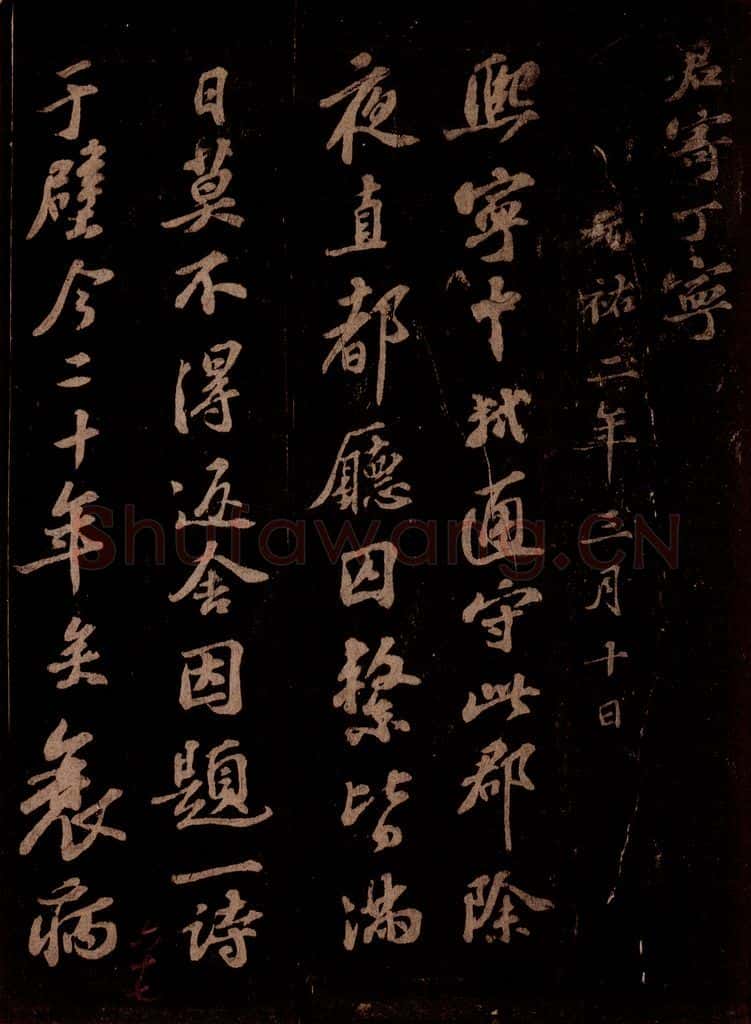 君寄丁寧
元祐二年三月十日
熙寧中軾通守此郡除
夜直都廳囚繫皆滿
日莫不得返舍因題一詩
于壁今二十年矣衰病
Shufawang.CN